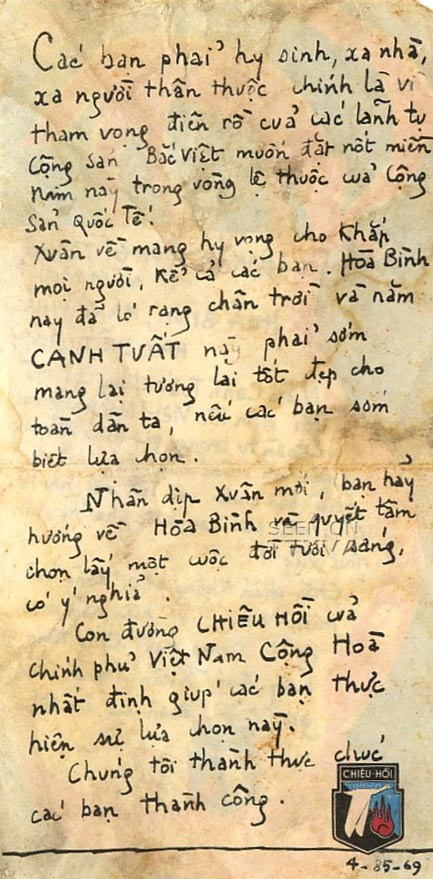 Các bạn phải hy sinh, xa nhà,
xa người thân thuộc chính là vì
tham vọng điên rồ của các lãnh tụ
Cộng sản Bắc Việt muốn đặt nốt miền
Nam này trong vòng lệ thuộc của Cộng
Sản Quốc Tế!
Xuân về mang hy vọng cho khắp
mọi người, kể cả các bạn. Hòa Bình
nay đã ló rạng chân trời và năm
CANH TUẤT này phải sớm
mang lại tương lai tốt đẹp cho
toàn dân ta, nếu các bạn sớm
biết lựa chọn.
Nhân dịp Xuân mới, bạn hãy
hướng về Hòa Bình và quyết tâm
chọn lấy một cuộc đời tươi sáng,
có ý nghĩa.
Con đường CHIÊU HỒI của
chính phủ Việt Nam Cộng Hoà
nhất định giúp các bạn thực
hiện sự lựa chọn này.
Chúng tôi thành thực chúc
các bạn thành công.
CHIÊU-HỒI
4-85-69
SEEN ON